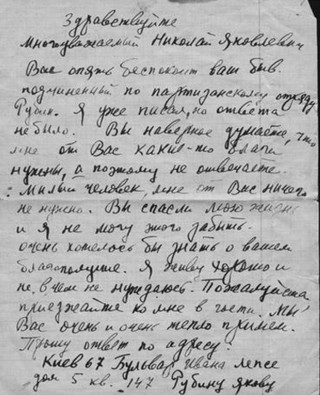 Здравствуйте
многоуважаемый Николай Яковлевич
Вас опять беспокоит ваш быв.
подчиненный по партизанскому отряду
Рубин. Я уже писал, но ответа
не было. Вы наверное думаете, что
мне от Вас какие-то блага
нужны, а поэтому не отвечаете.
Милый человек, мне от Вас ничего
не нужно. Вы спасли мою жизнь
и я не могу этого забыть.
очень хотелось бы знать о вашем
благополучие. Я живу хорошо и
не в чем не нуждаюсь. Пожалуйста
приезжайте ко мне в гости. Мы
Вас очень и очень тепло примем.
Прошу ответ по адресу:
Киев 67 Бульвар Ивана лепсе
дом 5 кв. 147 Рубину Якову